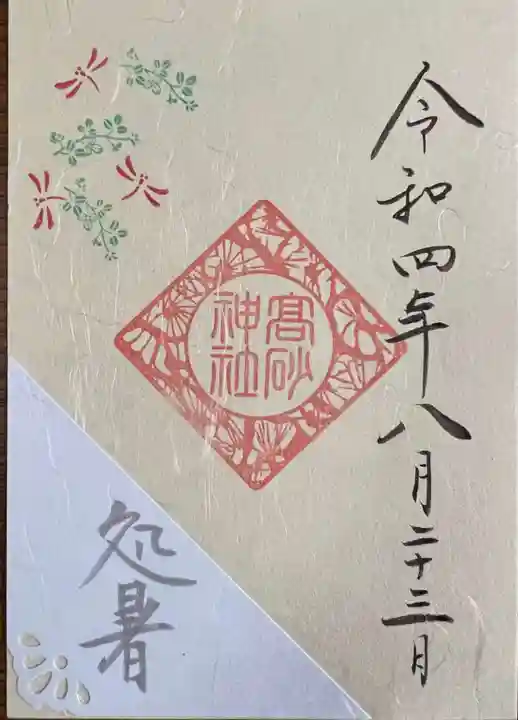 令和四年八月二十三日
髙砂
神社
処暑